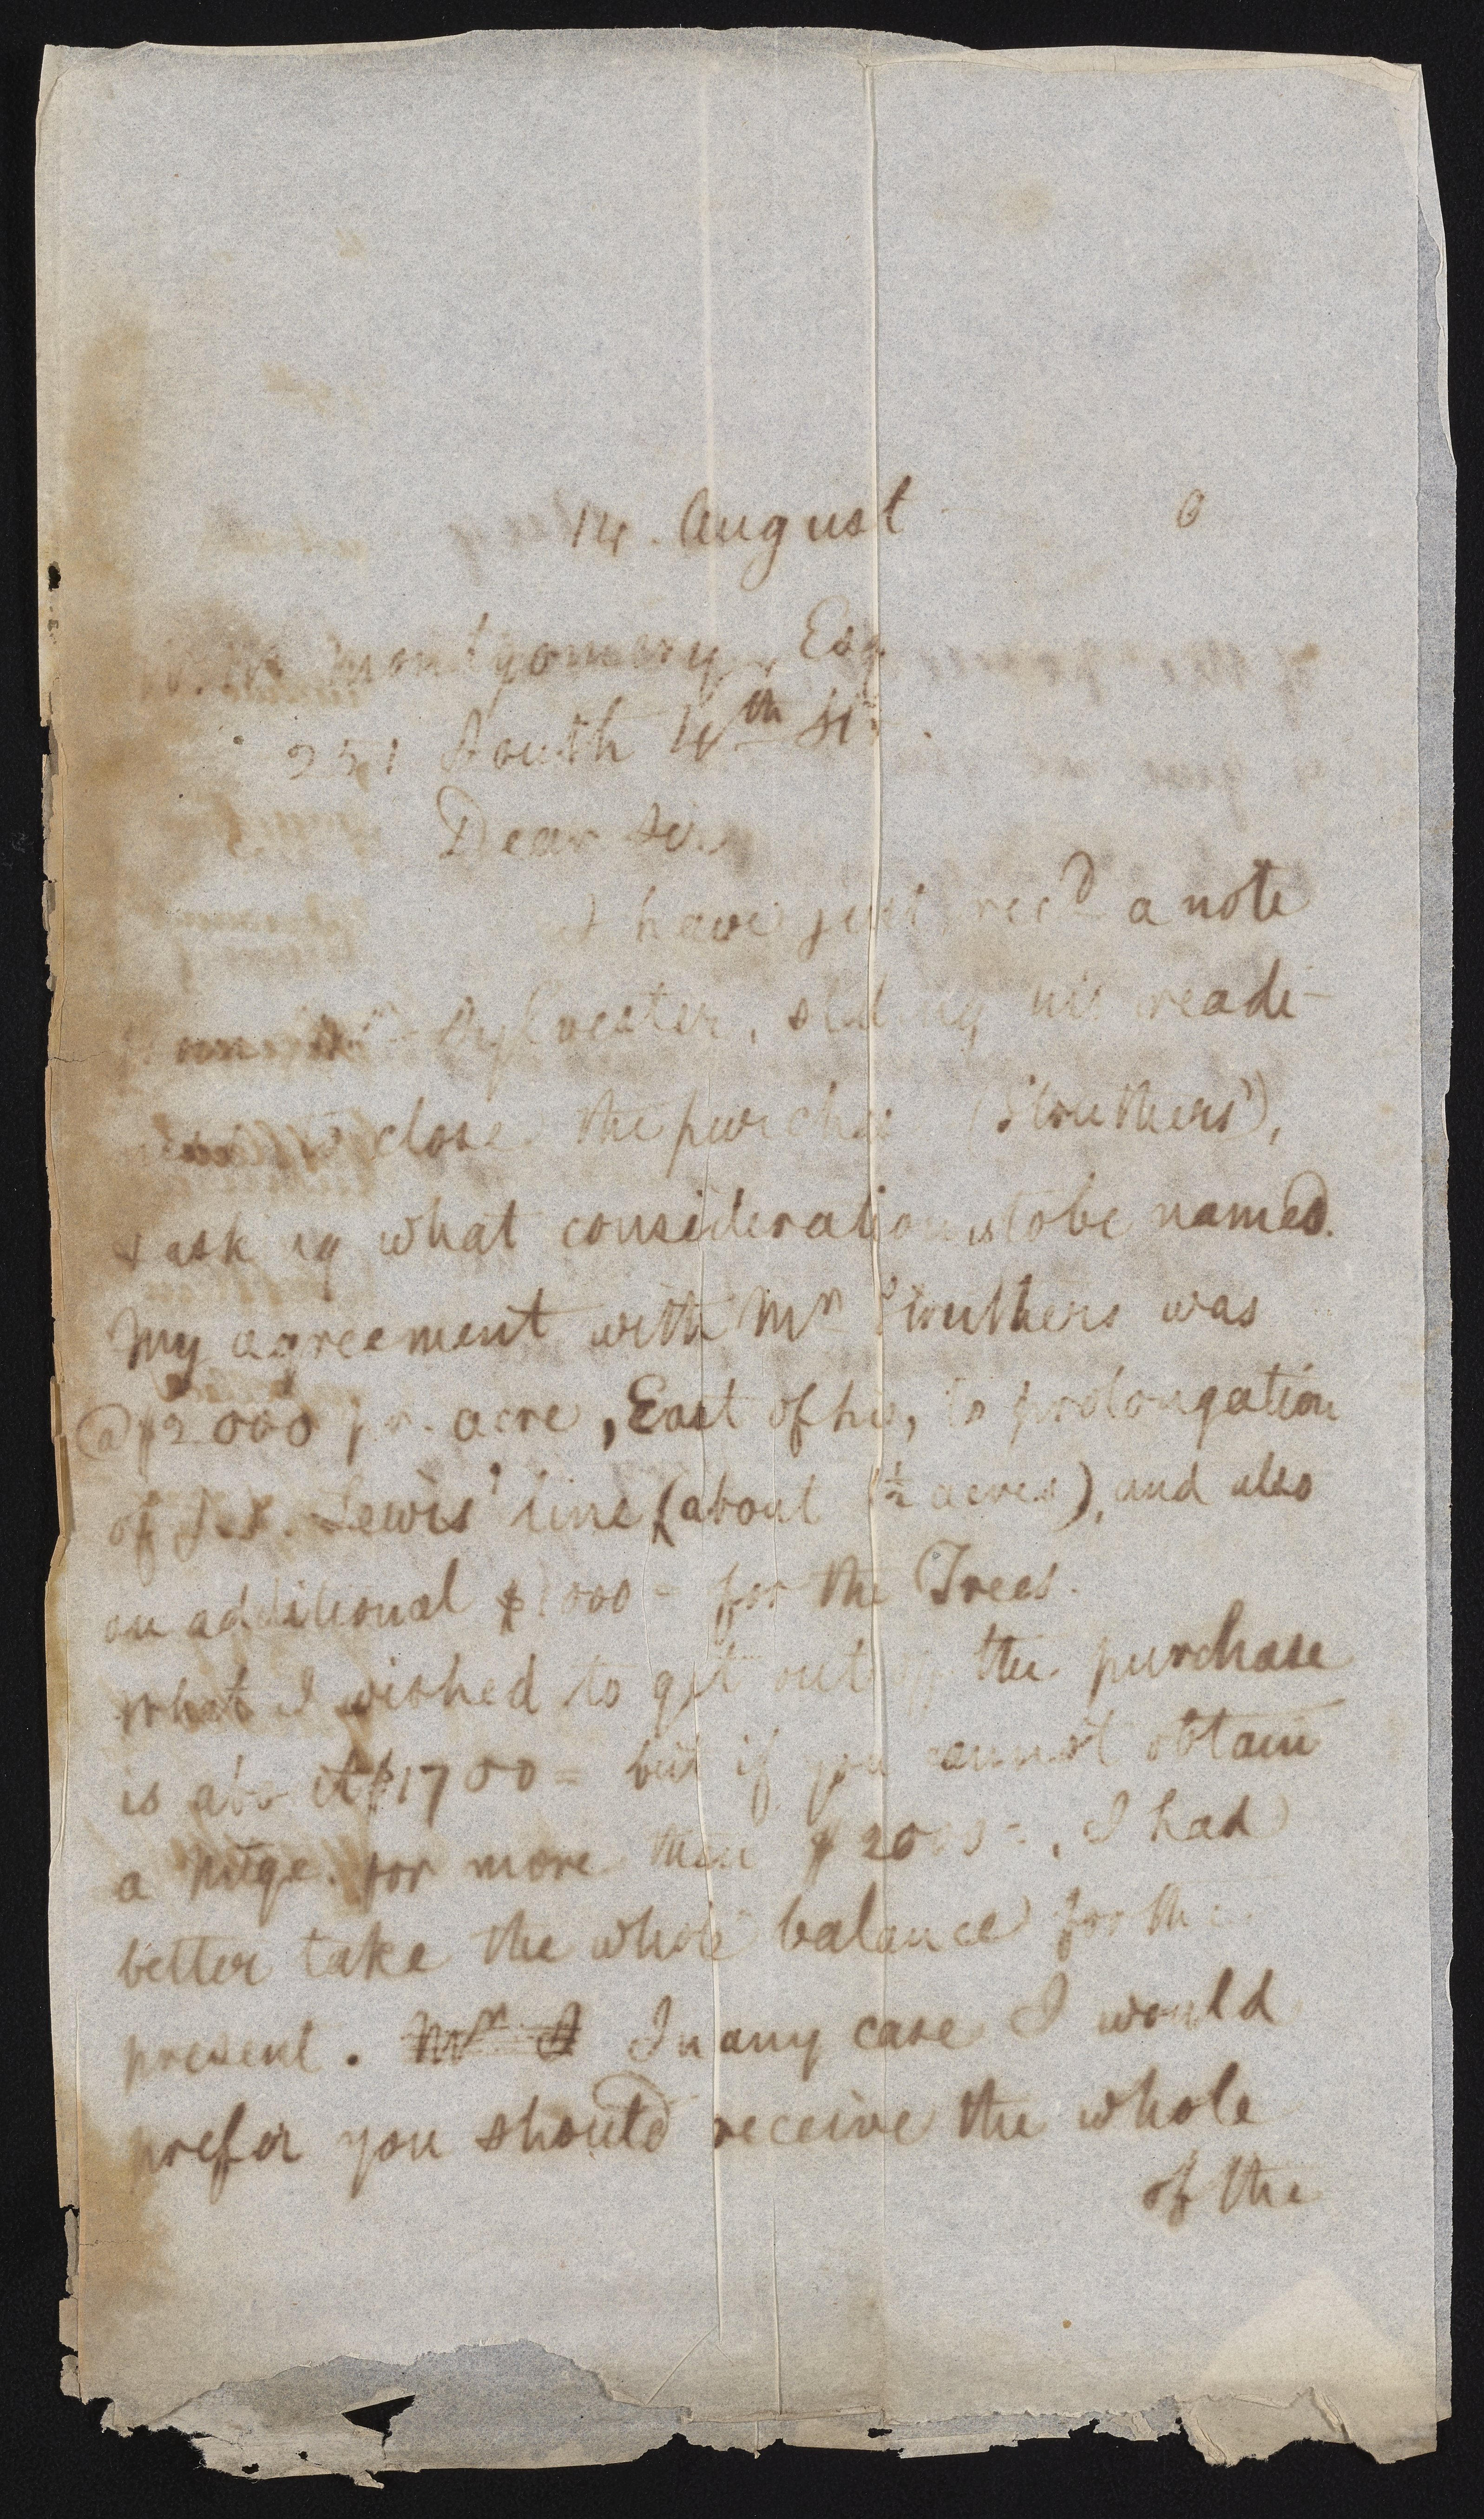 14. August 6
W. W. Montgomery, Esq
251 South 4th St.
Dear Sir
I have just recd a note
from Mr Sylvester, stating his readi-
close the purchase (Struthers'),
& asking what consideration is to be named.
My agreement with Mr Struthers was
@ $2000 pr. acre, East of his, to prolongation
of Lewis' line (about ½ acres), and also
an additional $1000 - for the Trees.
What I wished to get out of the purchase
is about $1700 = but if you cannot obtain
a mtge. for more than $2000 =, I had
better take the whole balance for the
present. Mr S In any case I would
prefer you should receive the whole
of the